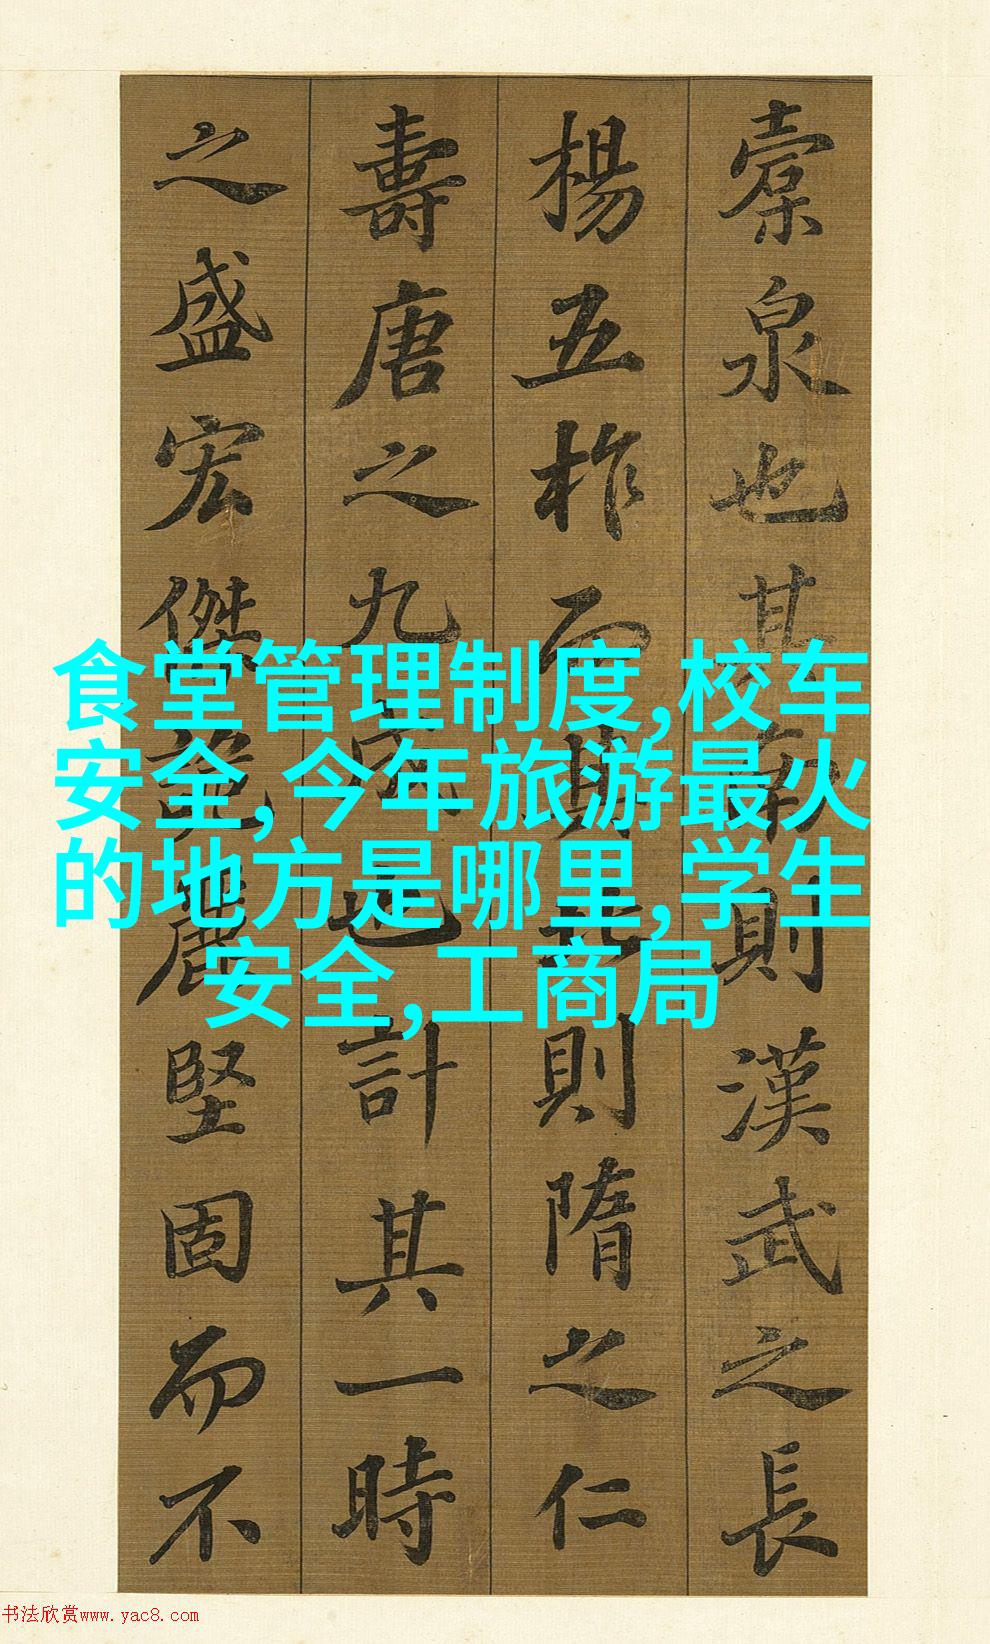 橐泉也其南則漢武之長
楊五柞而其北則隋之仁
壽唐之九成也計其一時
之盛宏傑詭麗堅固而不
食堂管理制度,校车
安全,今年旅游最火
的地方是哪里,学生
安全,工商局
书法欣赏www.yac8.com